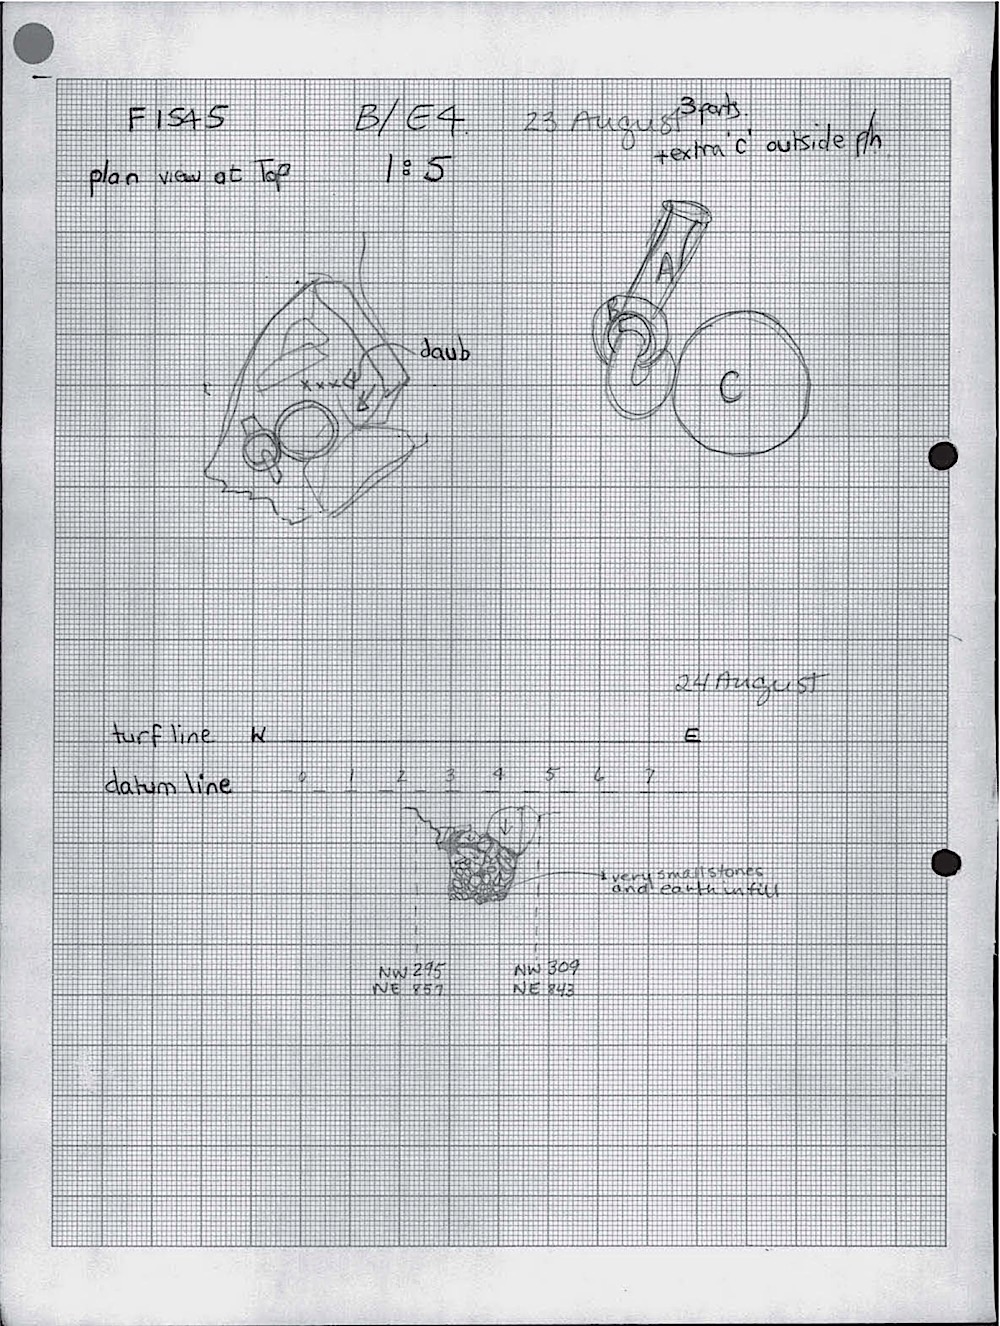 F1545 B/E4 23 August 3 parts.
+extra 'C' outside ph
plan view at Top 1:5
A
B
daub
x x x
C
24 August
turf line W E
datum line 0 1 2 3 4 5 6 7
very small stones
and earth infill
NW 295 NW 309
NE 857 NE 843